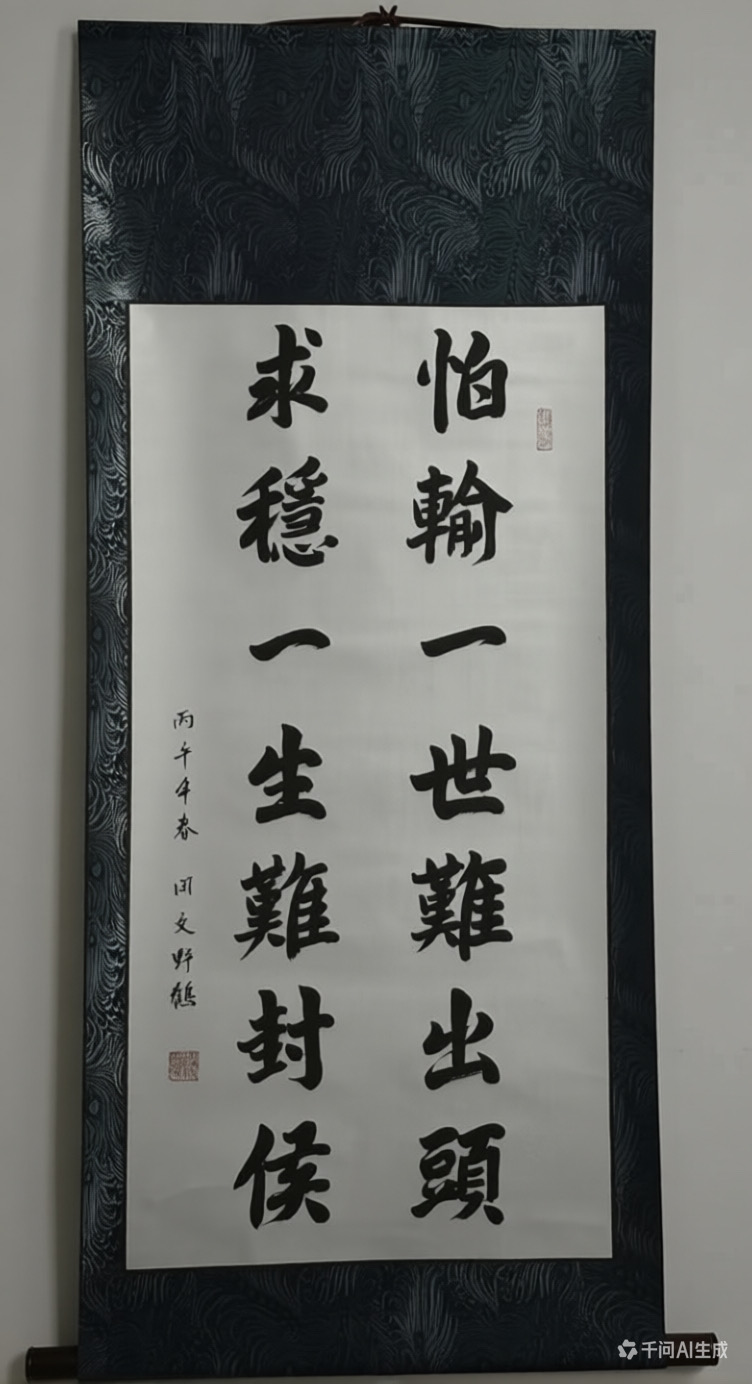 怕輸一世難出頭
求穩一生難封侯
丙午年春 闲文野鶴
千问AI生成